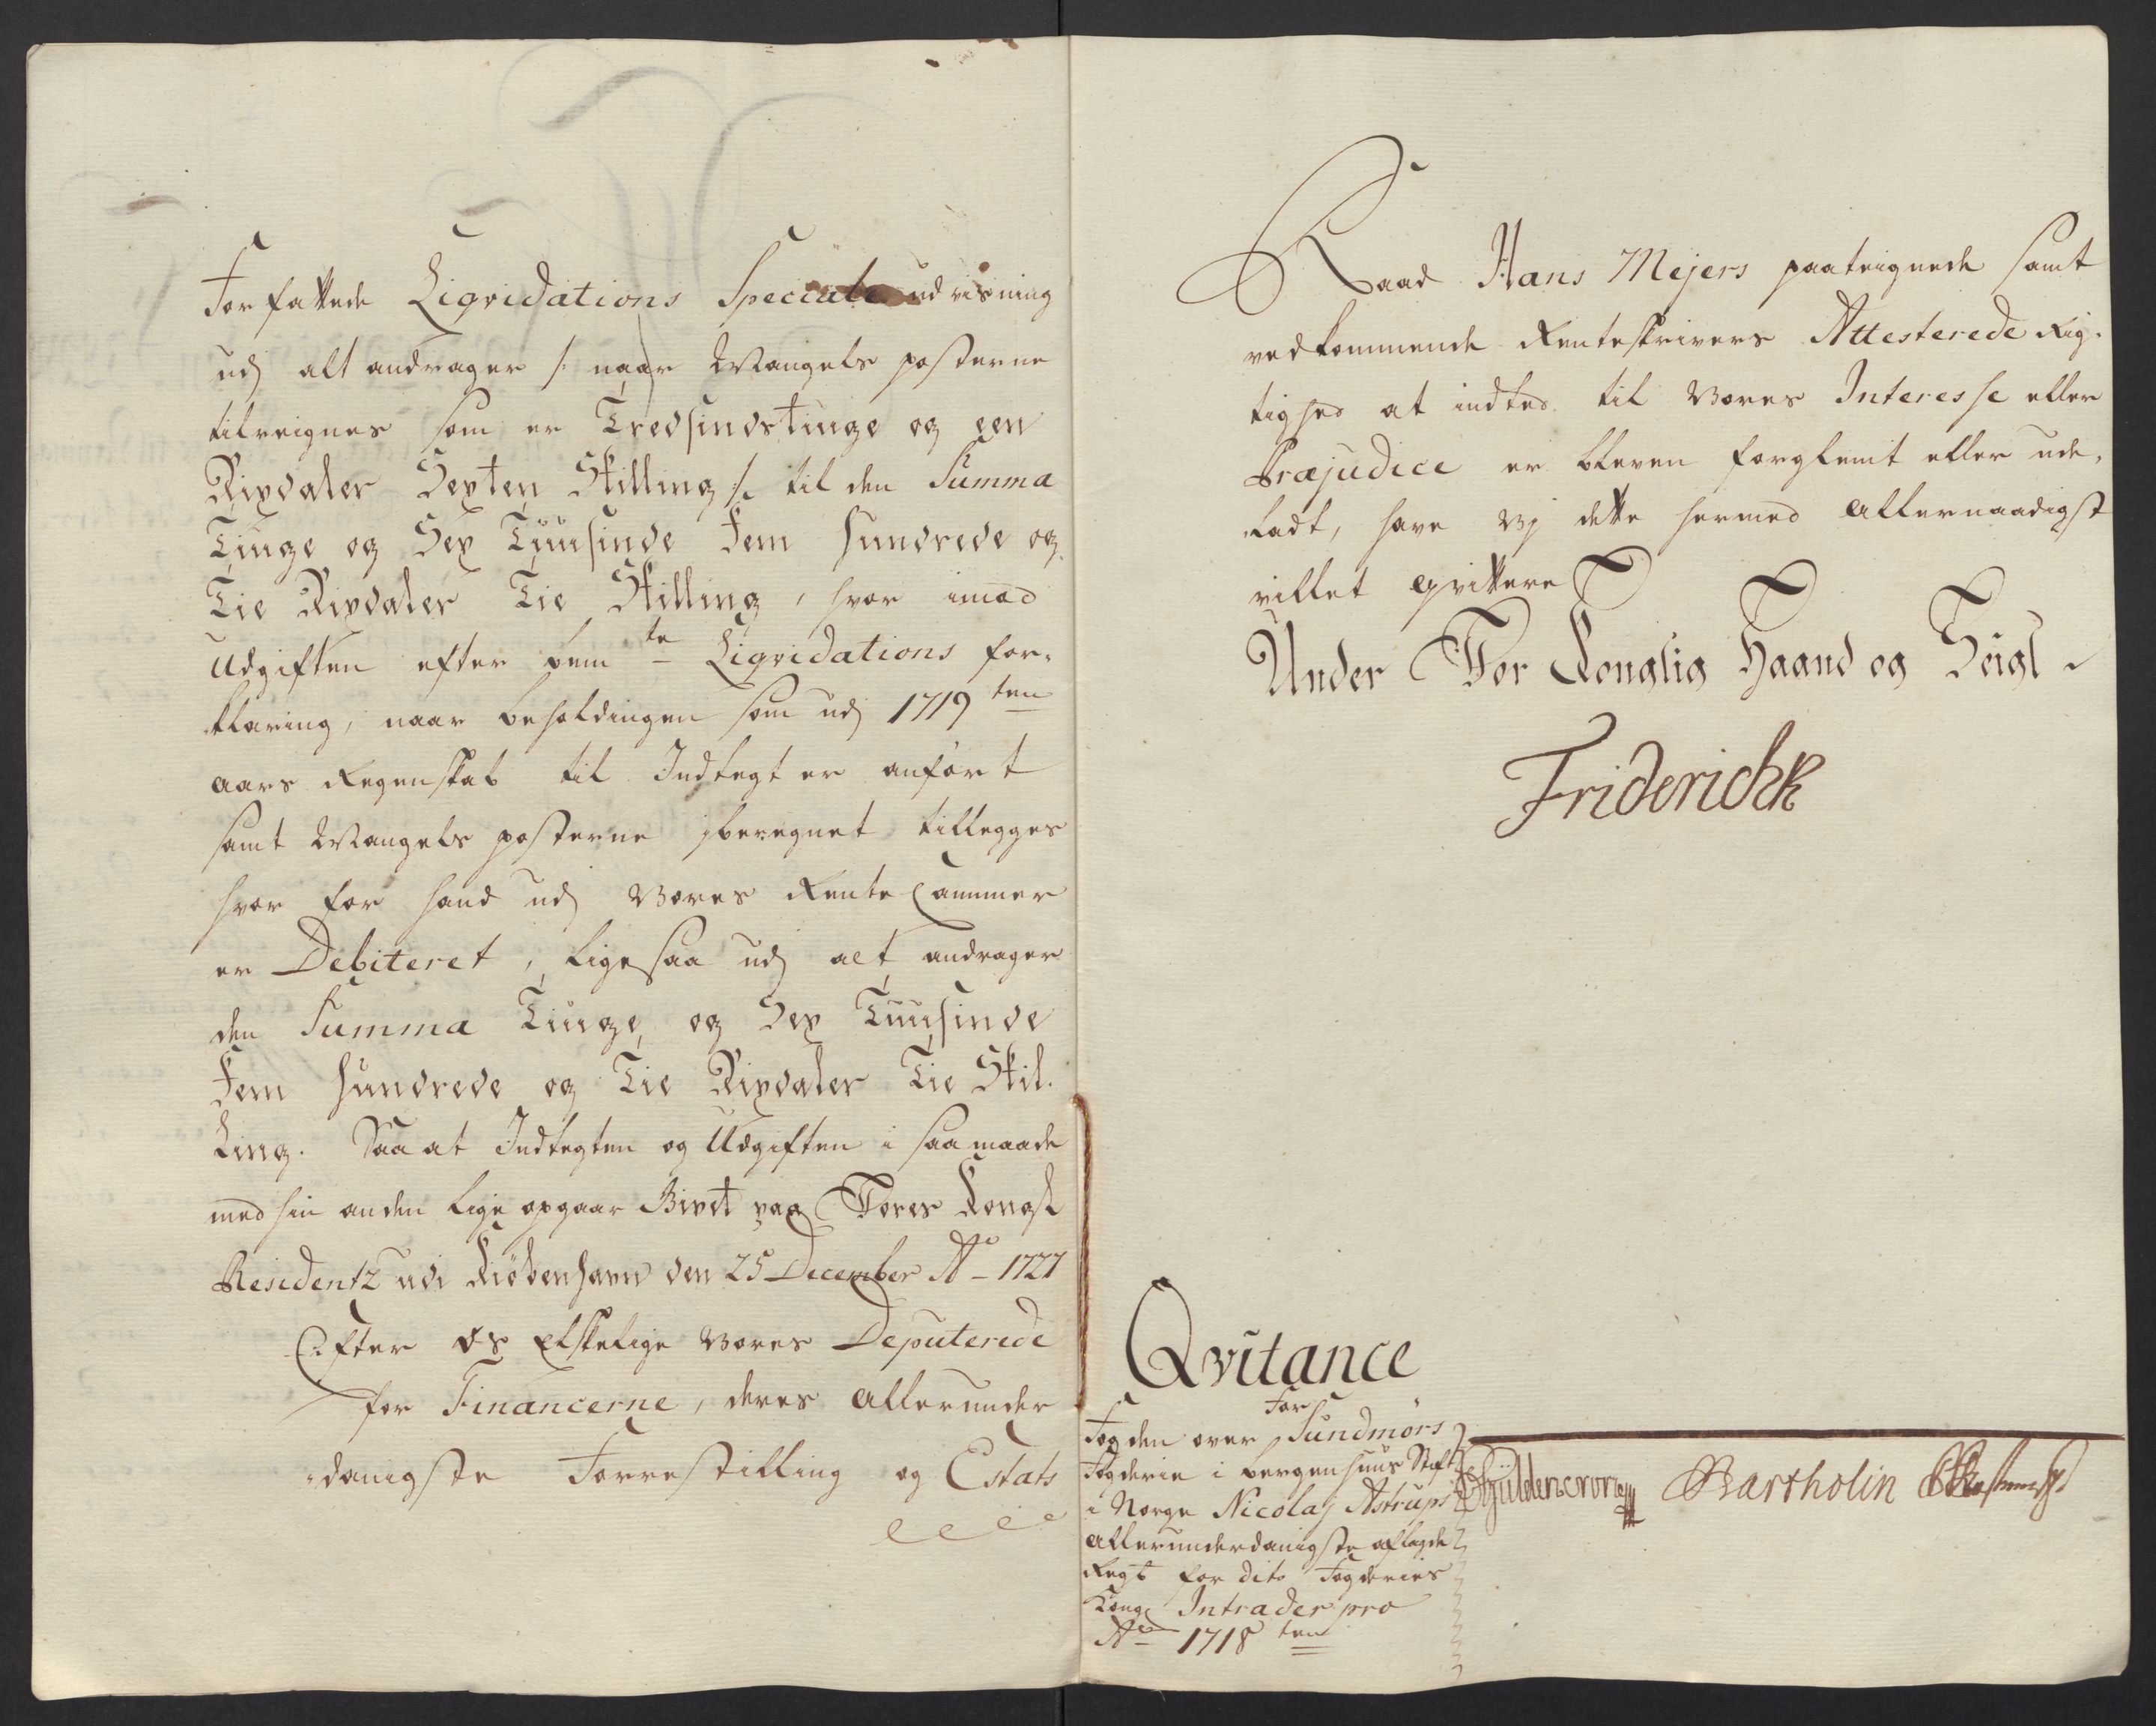 Forfattede Liqvidations Speciale udvisning
udj alt andrager /: naar Mangels posterne
tilreignes som er Tredsindstiuge og een
Rixdaler Sexten Skilling :/ til den Summa
Tiuge og Sex Tuusinde Fem Hundrede og
Tie Rixdaler Tie Skilling, hvor imod
Udgiften efter bemte Liqvidations for-
klaring, naar beholdingen som udj 1719ten
aars Regenskab til Indtegt er anført
samt Mangels posterne jberegnet tillegges
hvor for hand udj Vores Rente Cammer
er Debiteret, ligesaa udj alt andrager
den Summa Tiuge og Sex Tuusinde
Fem Hundrede og Tie Rixdaler Tie Skil-
ling. Saa at Indtegten og Udgiften i saa maade
med hin anden lige opgaar Givet paa Vores Kongl
Residentz udi Kiöbenhavn den 25 December Ao 1727
Efter os Elskelige Vores Deputerede
for Financerne, deres allerunder
-danigste Forrestilling og Estats
Raad Hans Mejers paateignede samt
vedkommende Renteskrivers Attesterede Rig-
tighed at indted til Vores Interesse eller
Præjudice er bleven forglemt eller ude-
ladt, have Vj dette hermed allernaadigst
villet qvittere
Under Vor Konglig Haand og Seigl
FriderichR
Qvitance
For
Fogden over Sundmörs
Fogderie i bergenhuus Stift
i Norge Nicolaj Astrups
allerunderdanigste aflagde
Regsb for dito Fogderies
Kong Intrader pro
Ao 1718ten
Gÿldencrone Bartholin